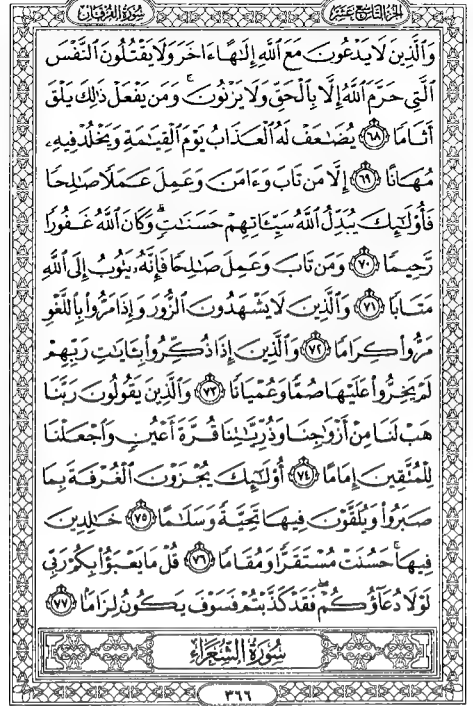 سورة الفرقان
الجزء التاسع عشر
وَٱلَّذِينَ لَا يَدْعُونَ مَعَ ٱللَّهِ إِلَٰهًا ءَاخَرَ وَلَا يَقْتُلُونَ ٱلنَّفْسَ
ٱلَّتِى حَرَّمَ ٱللَّهُ إِلَّا بِٱلْحَقِّ وَلَا يَزْنُونَ ۚ وَمَن يَفْعَلْ ذَٰلِكَ يَلْقَ
أَثَامًا ٦٨ يُضَٰعَفْ لَهُ ٱلْعَذَابُ يَوْمَ ٱلْقِيَٰمَةِ وَيَخْلُدْ فِيهِۦ
مُهَانًا ٦٩ إِلَّا مَن تَابَ وَءَامَنَ وَعَمِلَ عَمَلًا صَٰلِحًا
فَأُو۟لَٰٓئِكَ يُبَدِّلُ ٱللَّهُ سَيِّـَٔاتِهِمْ حَسَنَٰتٍ ۗ وَكَانَ ٱللَّهُ غَفُورًا
رَّحِيمًا ٧٠ وَمَن تَابَ وَعَمِلَ صَٰلِحًا فَإِنَّهُۥ يَتُوبُ إِلَى ٱللَّهِ
مَتَابًا ٧١ وَٱلَّذِينَ لَا يَشْهَدُونَ ٱلزُّورَ وَإِذَا مَرُّوا۟ بِٱللَّغْوِ
مَرُّوا۟ كِرَامًا ٧٢ وَٱلَّذِينَ إِذَا ذُكِّرُوا۟ بِـَٔايَٰتِ رَبِّهِمْ
لَمْ يَخِرُّوا۟ عَلَيْهَا صُمًّا وَعُمْيَانًا ٧٣ وَٱلَّذِينَ يَقُولُونَ رَبَّنَا
هَبْ لَنَا مِنْ أَزْوَٰجِنَا وَذُرِّيَّٰتِنَا قُرَّةَ أَعْيُنٍ وَٱجْعَلْنَا
لِلْمُتَّقِينَ إِمَامًا ٧٤ أُو۟لَٰٓئِكَ يُجْزَوْنَ ٱلْغُرْفَةَ بِمَا
صَبَرُوا۟ وَيُلَقَّوْنَ فِيهَا تَحِيَّةً وَسَلَٰمًا ٧٥ خَٰلِدِينَ
فِيهَا ۚ حَسُنَتْ مُسْتَقَرًّا وَمُقَامًا ٧٦ قُلْ مَا يَعْبَؤُا۟ بِكُمْ رَبِّى
لَوْلَا دُعَآؤُكُمْ ۖ فَقَدْ كَذَّبْتُمْ فَسَوْفَ يَكُونُ لِزَامًۢا ٧٧
سُورَةُ الشُّعَرَاءِ
٣٦٦